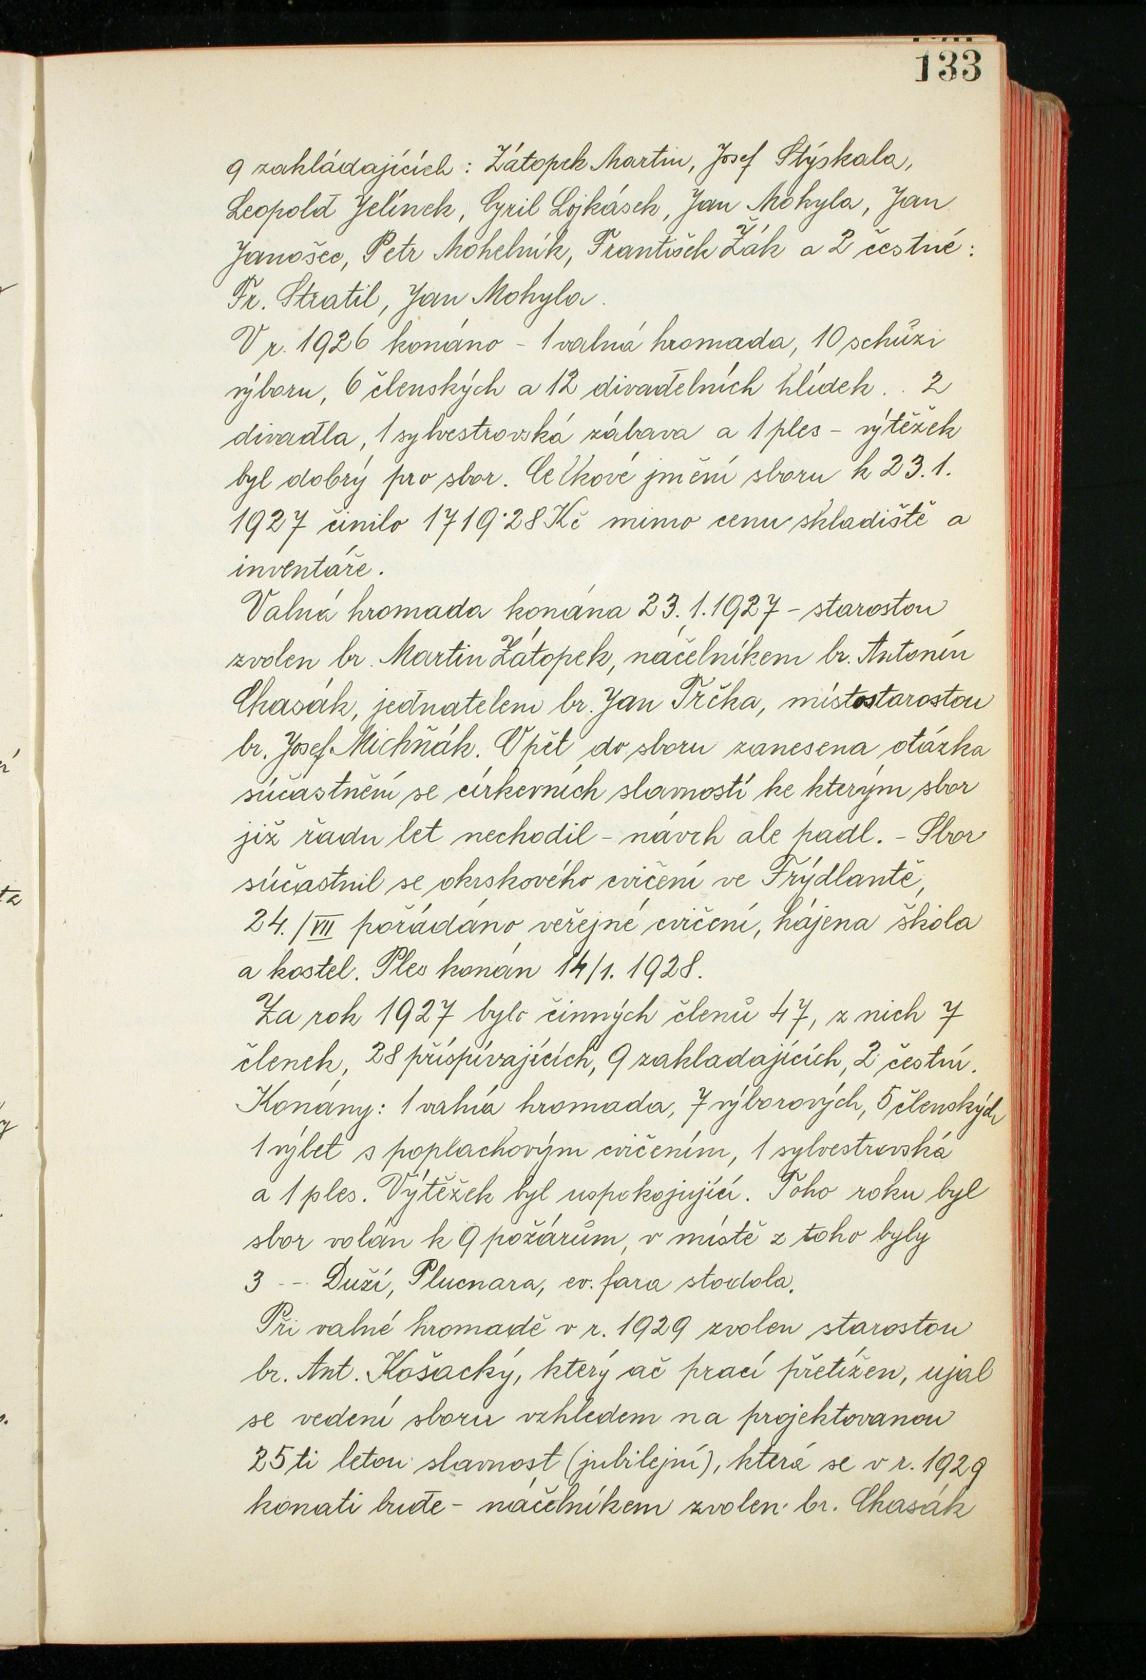 133
9 zakládajících: Zátopek Martin, Josef Stýskala,
Leopold Jelínek, Cyril Lojkásek, Jan Mohyla, Jan
Janošec, Petr Mohelník, František Žák a 2 čestné:
Fr. Stratil, Jan Mohyla.
V r. 1926 konáno - 1 valná hromada, 10 schůzi
výboru, 6 členských a 12 divadelních hlídek .. 2
divadla, 1 sylvestrovská zábava a 1 ples - výtěžek
byl dobrý pro sbor. Celkové jmění sboru k 23.1.
1927 činilo 1719·28 Kč mimo cenu skladiště a
inventáře.
Valná hromada konána 23.1.1927 - starostou
zvolen br. Martin Zátopek, náčelníkem br. Antonín
Chasák, jednatelem br. Jan Trčka, místostarostou
br. Josef Michňák. Opět do sboru zanesena otázka
súčastnění se církevních slavností ke kterým sbor
již řadu let nechodil - návrh ale padl. - Sbor
súčastnil se okrskového cvičení ve Frýdlantě,
24./VII pořádáno veřejné cvičení, hájena škola
a kostel. Ples konán 14/1. 1928.
Za rok 1927 bylo činných členů 47, z nich 7
členek, 28 příspívajících, 9 zakladajících, 2 čestní.
Konány: 1 valná hromada, 7 výborových, 5 členských
1 výlet s poplachovým cvičením, 1 sylvestrovská
a 1 ples. Výtěžek byl uspokojující. Toho roku byl
sbor volán k 9 požárům, v místě z toho byly
3 -- Duží, Plucnara, ev. fara stodola.
Při valné hromadě v r. 1929 zvolen starostou
br. Ant. Košacký, který ač prací přetížen, ujal
se vedení sboru vzhledem na projektovanou
25ti letou slavnost (jubilejní), která se v r. 1929
konati bude - náčelníkem zvolen br. Chasák